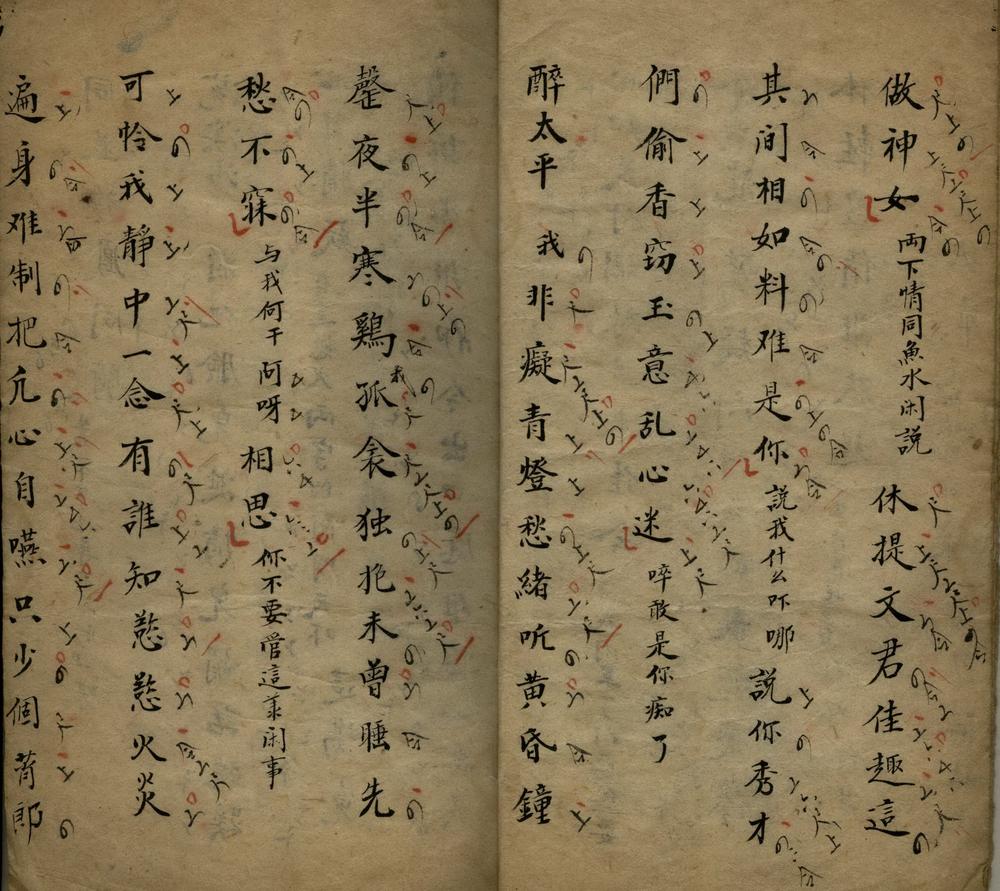 做神女 两下情同魚水闲説 休提文君佳趣這
其间相如料难是你 說我什么吓哪 説你秀才
們偷香窃玉意乱心迷 啐敢是你痴了
醉太平 我非癡青燈愁緒听黄昏鐘
罄夜半寒鷄我孤衾独抱未曾睡先
愁不寐 与我何干 阿呀 相思 你不要管這等闲事
可怜我靜中一念有誰知慾慾火炎
遍身难制把凡心自嚥只少個萧郎